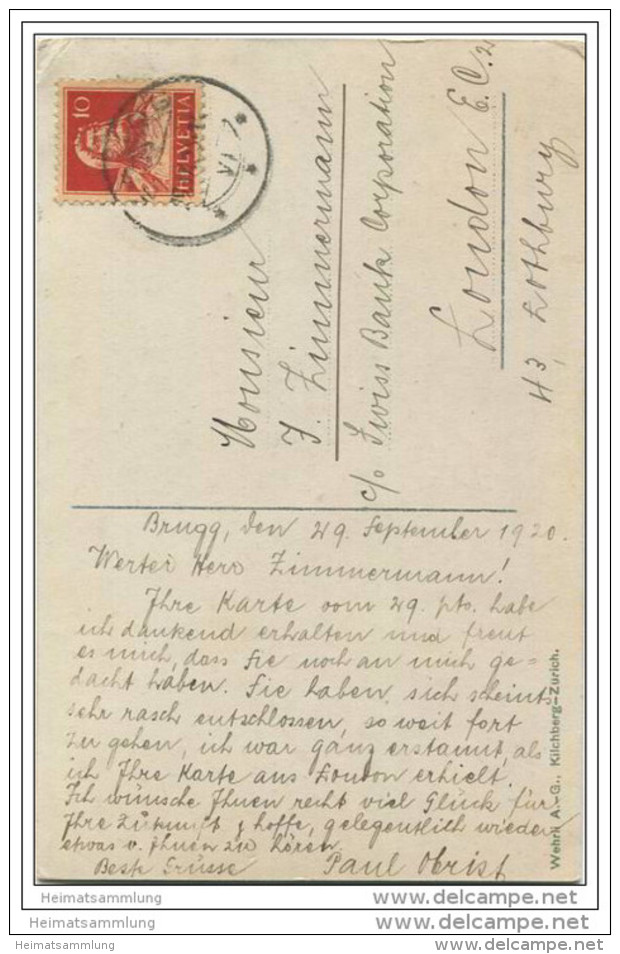 10
HELVETIA
VI
Monsieur
J. Zimmermann
c/o Swiss Bank Corporation
London E.C.2
43, Lothbury
Brugg, den 29. September 1920.
Werter Herr Zimmermann!
Ihre Karte vom 29. pto. habe
ich dankend erhalten und freut
es mich, dass Sie noch an mich ge=
dacht haben. Sie haben sich scheints
sehr rasch entschlossen, so weit fort
zu gehen, ich war ganz erstaunt, als
ich Ihre Karte aus London erhielt.
Ich wünsche Ihnen recht viel Glück für
Ihre Zukunft & hoffe, gelegentlich wieder
etwas v. Ihnen zu hören.
Beste Grüsse Paul Obrist
Wehrli A.-G., Kilchberg-Zürich.
Heimatsammlung
Heimatsammlung
Heimatsammlung